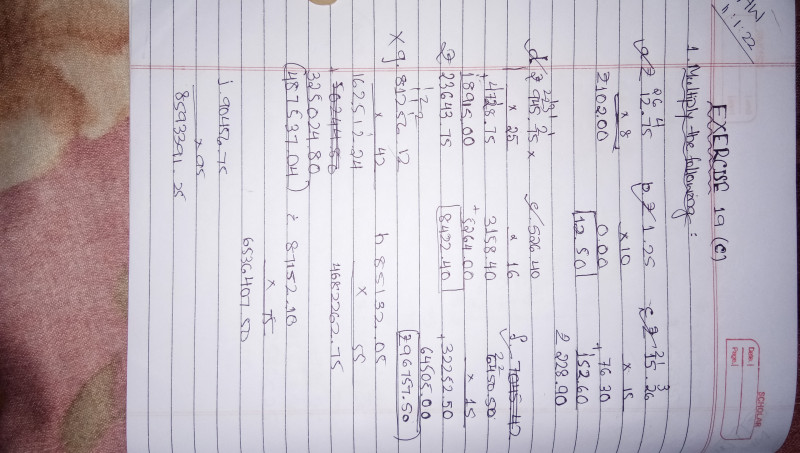 HW
1.1.22
SCHOLAR
Date:
Page:
EXERCISE 19 (C)
1. Multiply the following:
a ₹ 12.75
× 8
₹102.00
b ₹ 1.25
× 10
0.00
12.50
c ₹ 15.26
× 15
76 30
+ 152.60
₹ 228.90
d ₹ 945.75 ×
× 25
4728.75
18915.00
₹ 23643.75
e 526.40
× 16
3158.40
+ 5264.00
8422.40
f 7045.42
6450.50
× 15
32252.50
+ 64505.00
₹ 96757.50
× g 81256.12
× 42
162512.24
325024.80
(487537.04)
h 85132.05
× 55
4682262.75
i 87152.10
× 75
6536407.50
j. 90456.75
× 95
8593391.25